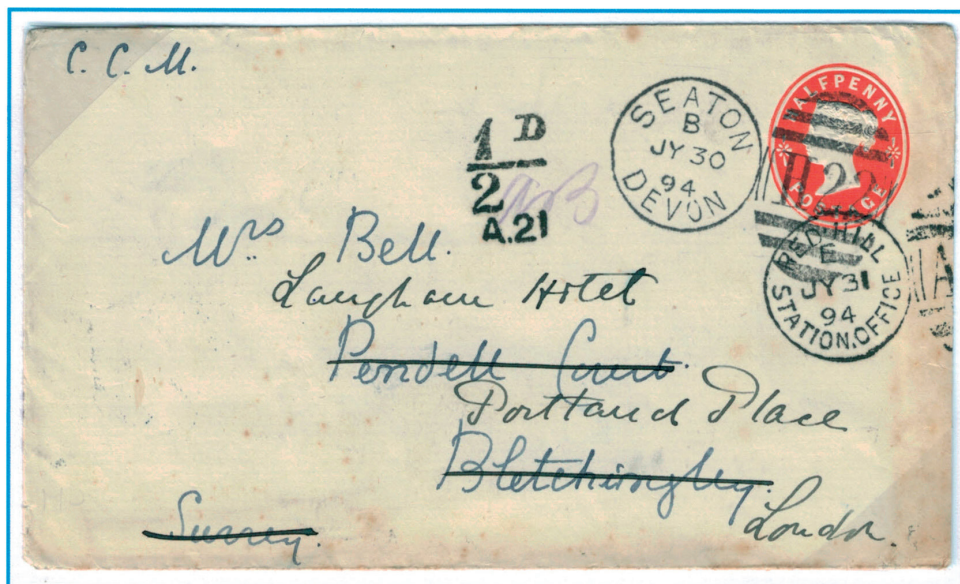 C. C. M.
SEATON
B
JY 30
94
DEVON
HALFPENNY
POSTAGE
1 D
2
A.21
REDHILL
E
JY 31
94
STATION.OFFICE
A
Mrs Bell.
Langham Hotel
Pendell Court.
Portland Place
Bletchingley.
Surrey.
London.